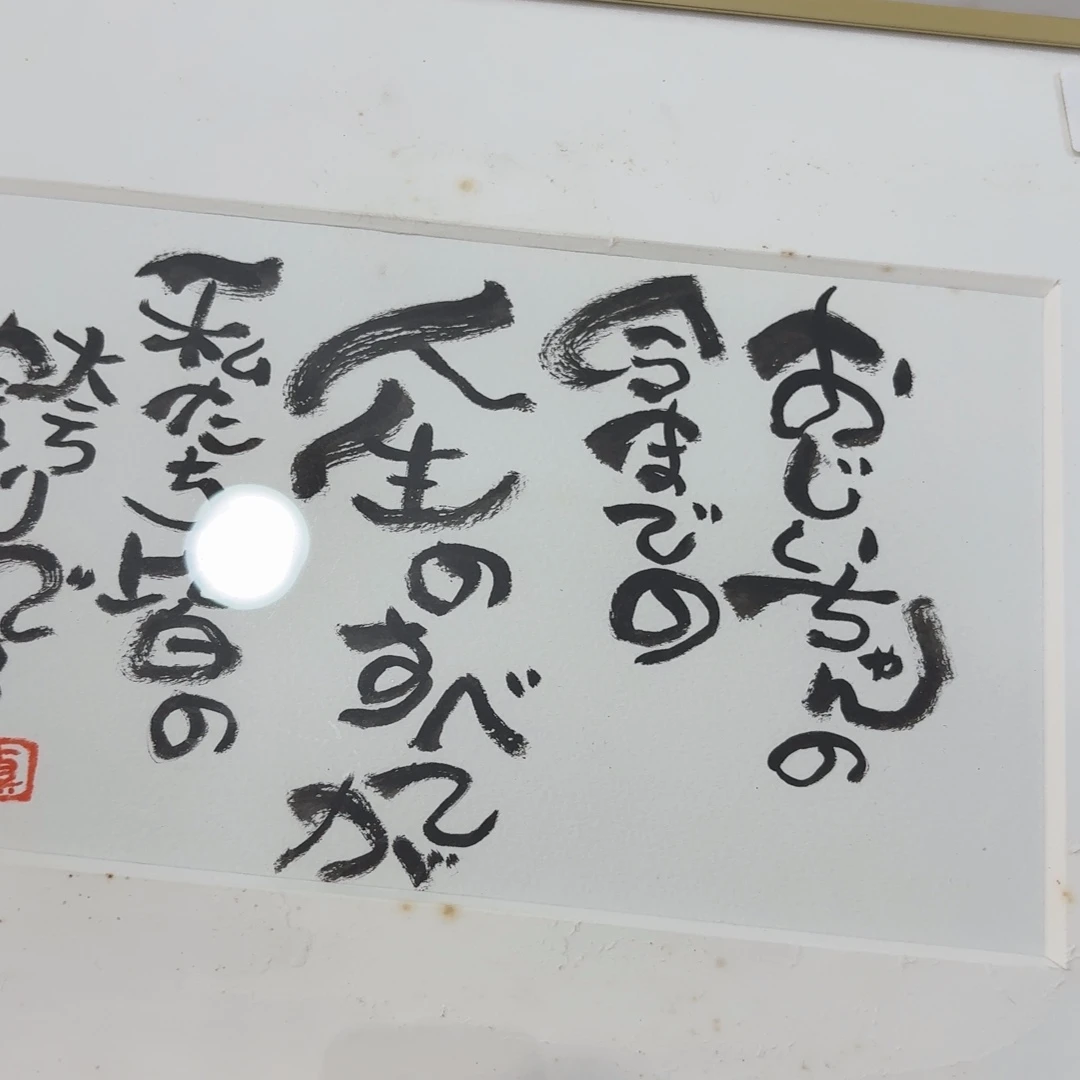 おじいちゃんの
今までの
人生のすべてが
私たち皆の
誇りで